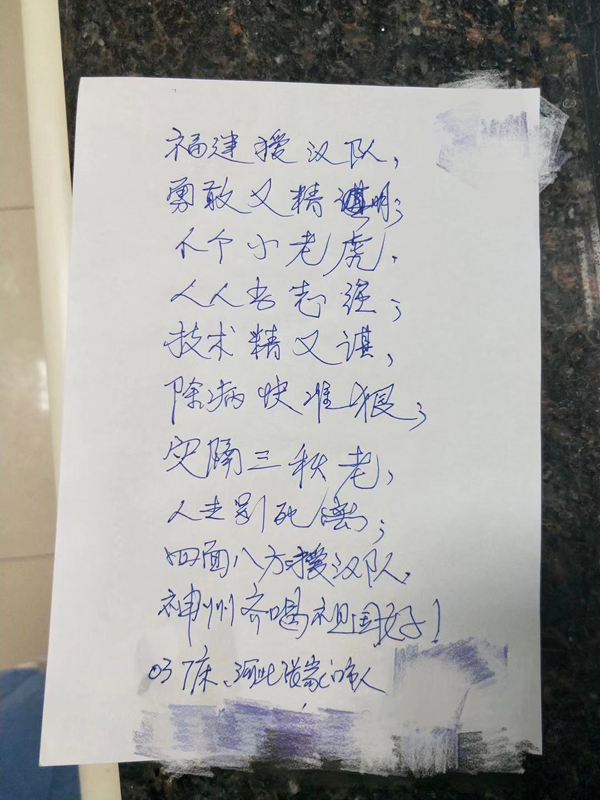 福建援汉队,
勇敢又精明;
个个小老虎,
人人出志强;
技术精又谌,
除病快准狠;
灾隔三秋老,
人走别死离;
四面八方援汉队,
神州齐唱祖国好!
037床、河北张家口市人